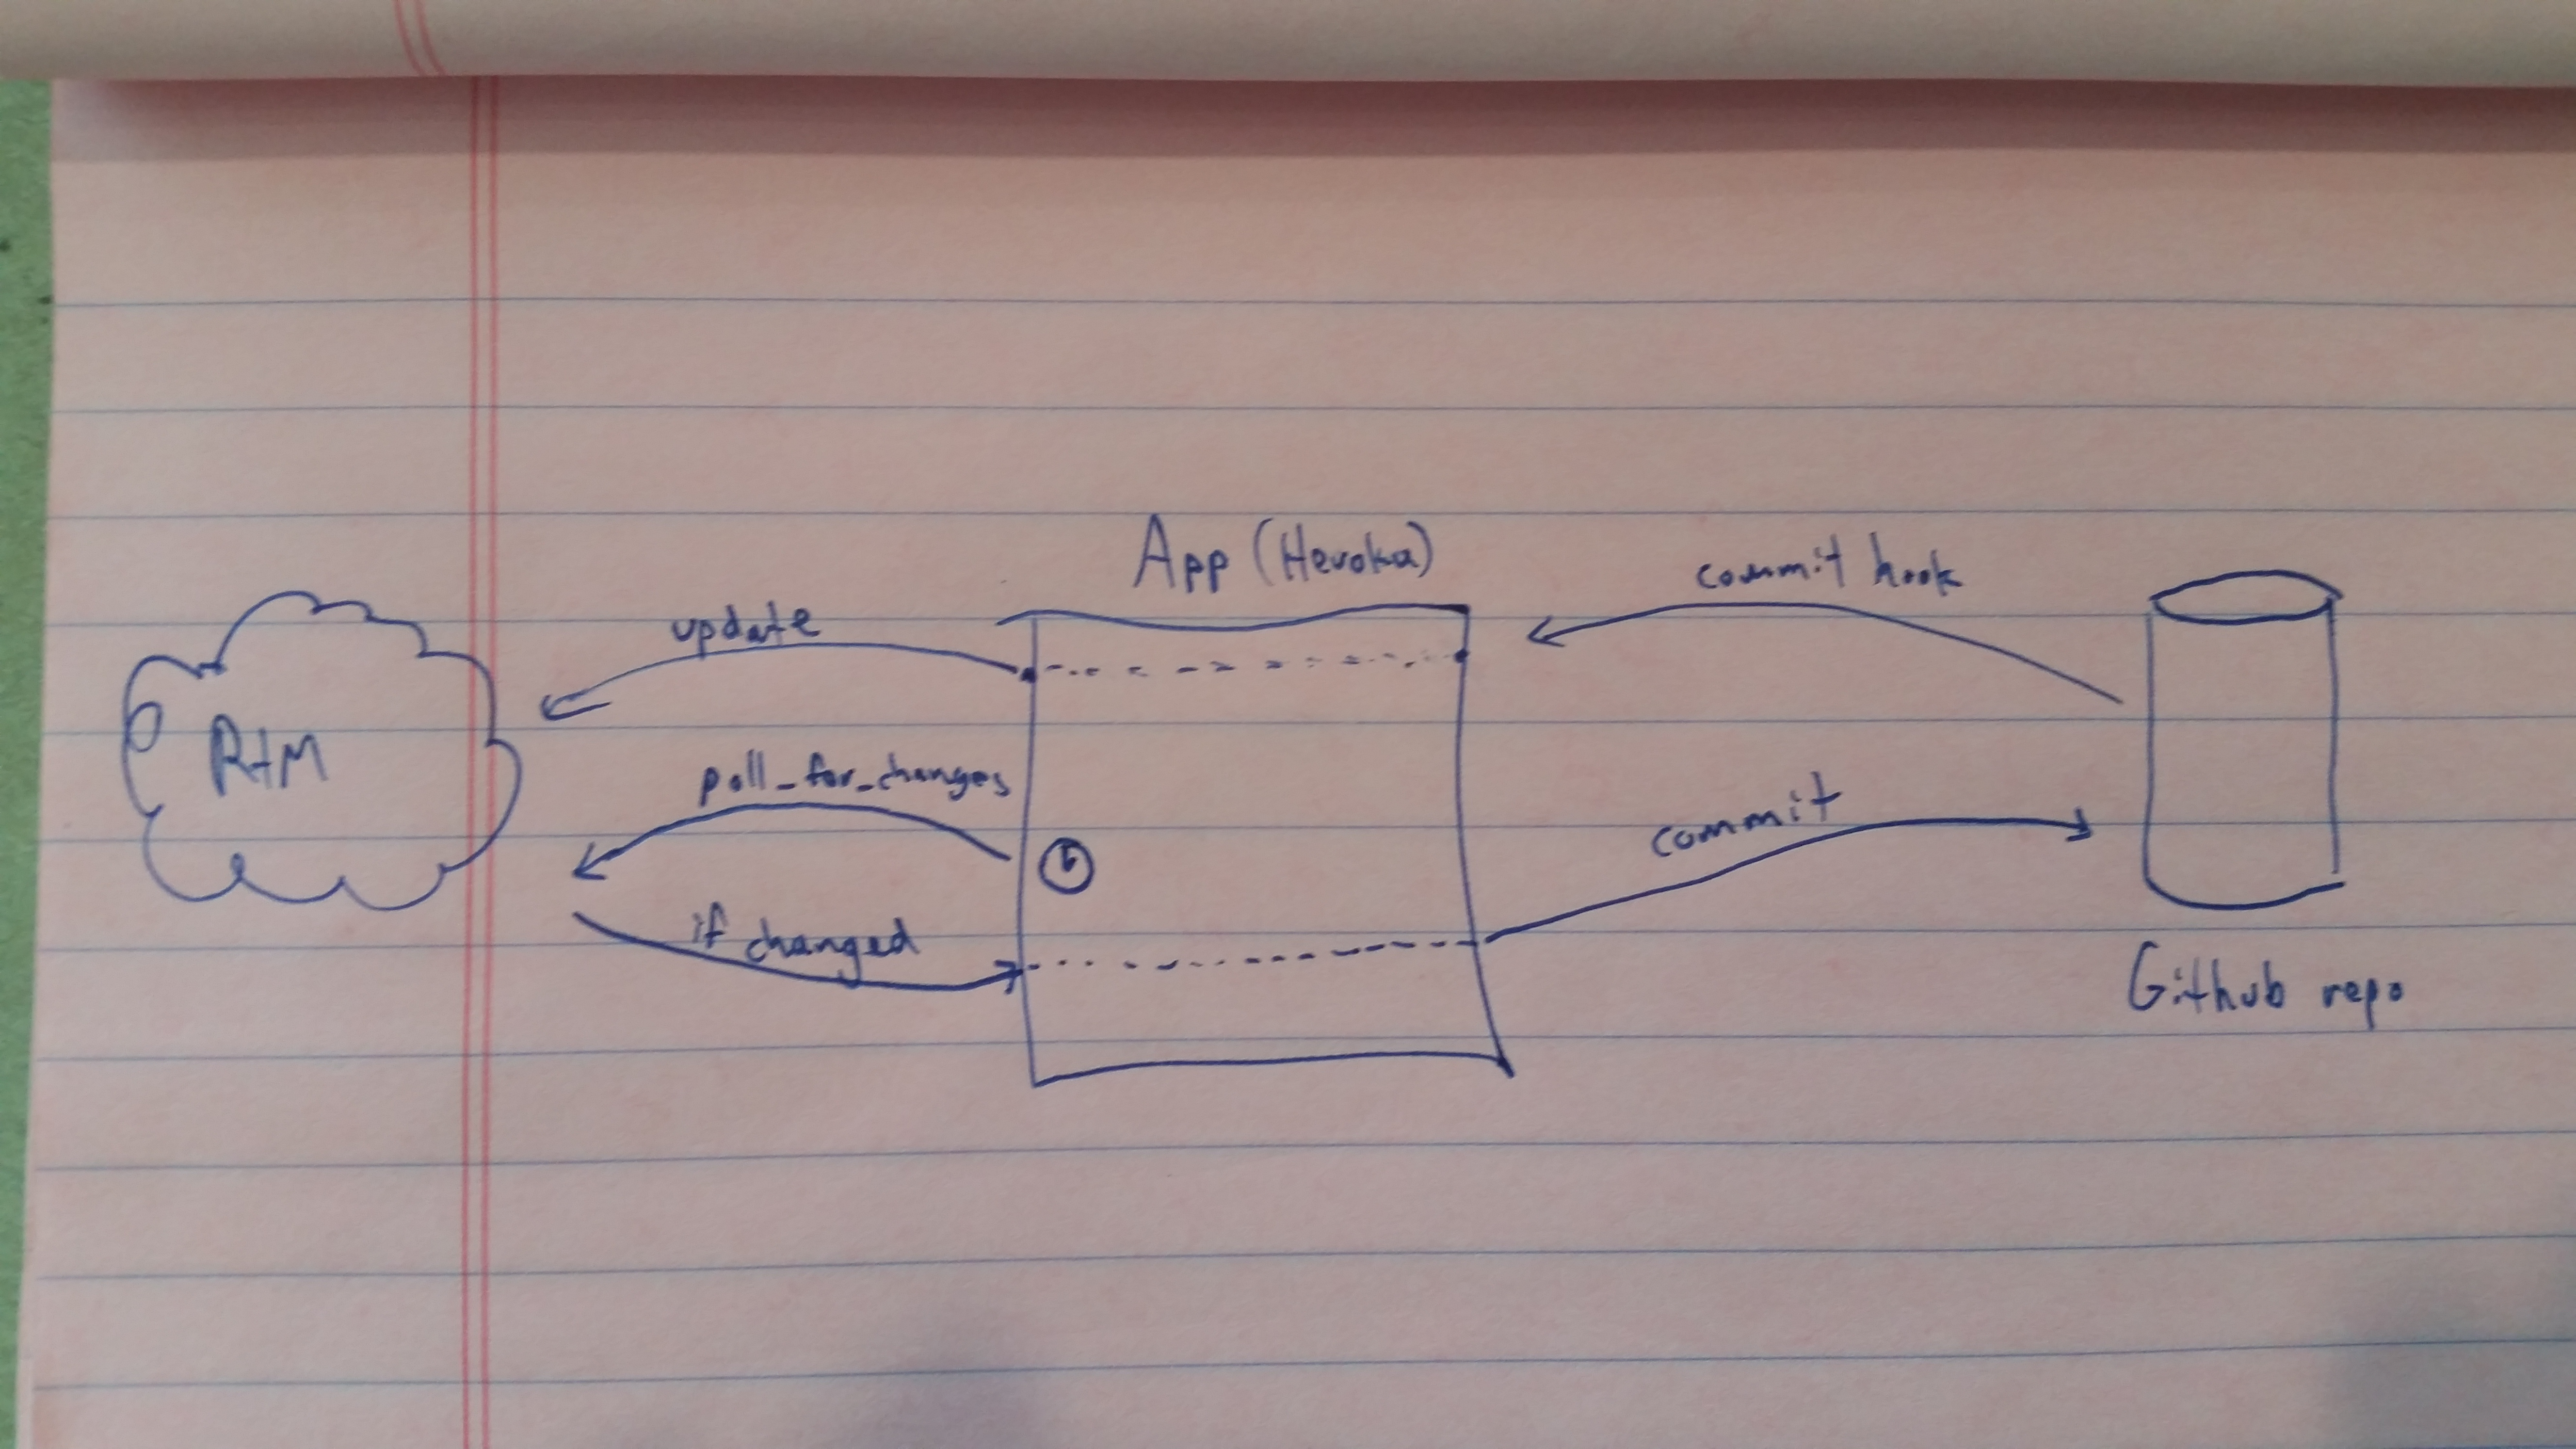 App (Heroku)
commit hook
update
RTM
poll_for_changes
commit
if changed
Github repo